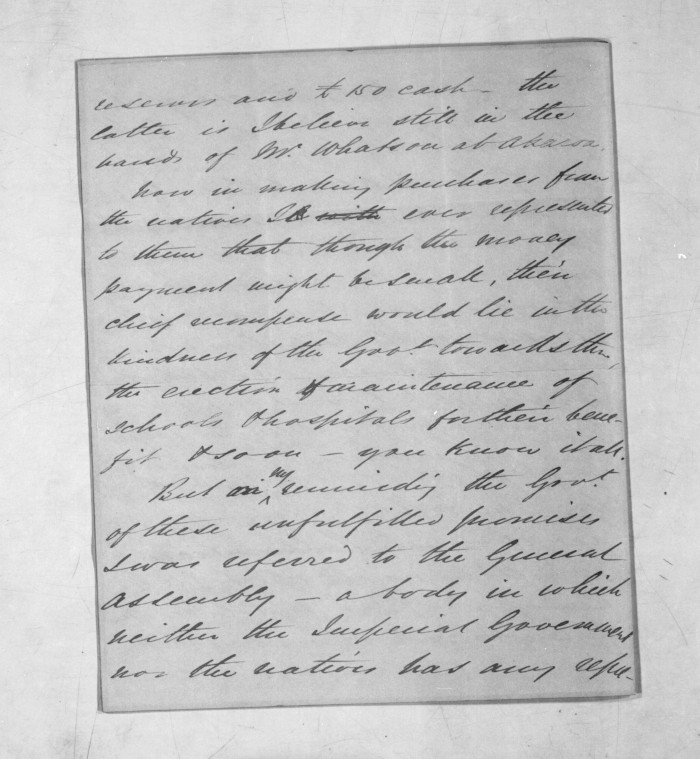 reserves and £150 cash – the
latter is I believe still in the
hands of Mr. Whatson at Akaroa.
Now in making purchases from
the natives I with ever represented
to them that though the money
payment might be small, their
chief recompense would lie in the
kindness of the Govt. towards them,
the erection & maintenance of
schools & hospitals for their bene-
fit & so on – you know it all.
But on my reminding the Govt.
of these unfulfilled promises
I was referred to the General
Assembly – a body in which
neither the Imperial Government
nor the natives has any repre-